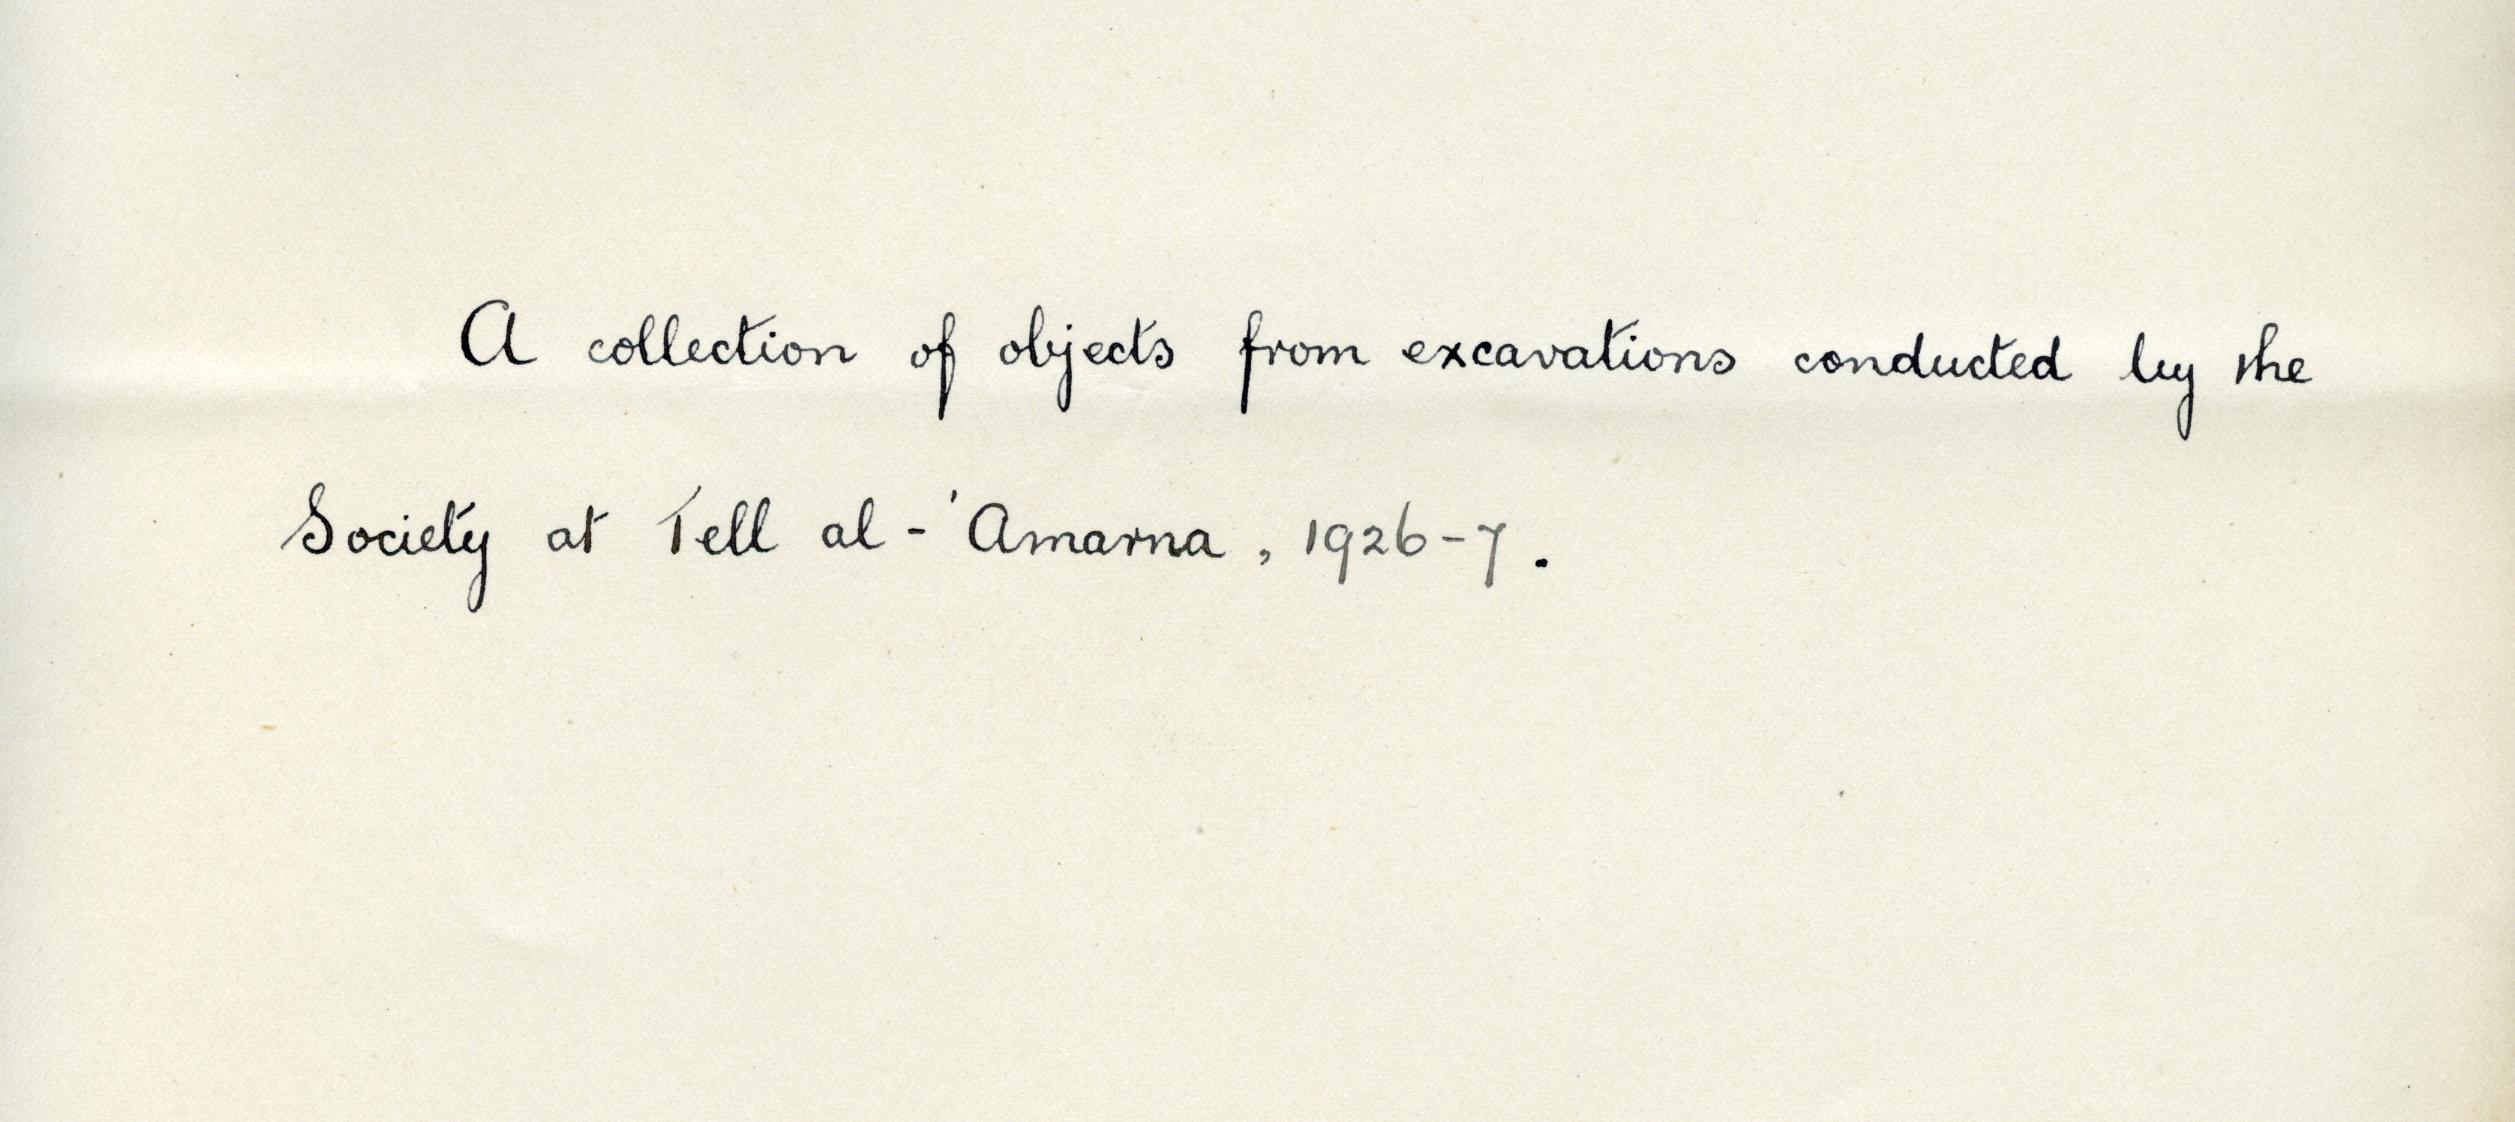 A collection of objects from excavations conducted by the
Society at Tell al-'Amarna, 1926-7.